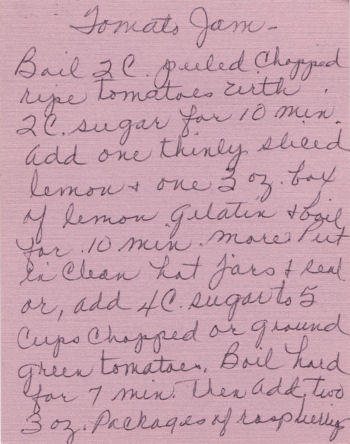 Tomato Jam -
Boil 2 C. peeled Chopped
ripe tomatoes with
2 C. sugar for 10 min.
Add one thinly sliced
lemon & one 3 oz. box
of lemon gelatin & boil
for 10 min. more. Put
in clean hot jars & seal
or, add 4 C. sugar to 5
Cups Chopped or ground
green tomatoes. Boil hard
for 7 min. Then add two
3 oz. Packages of raspberry